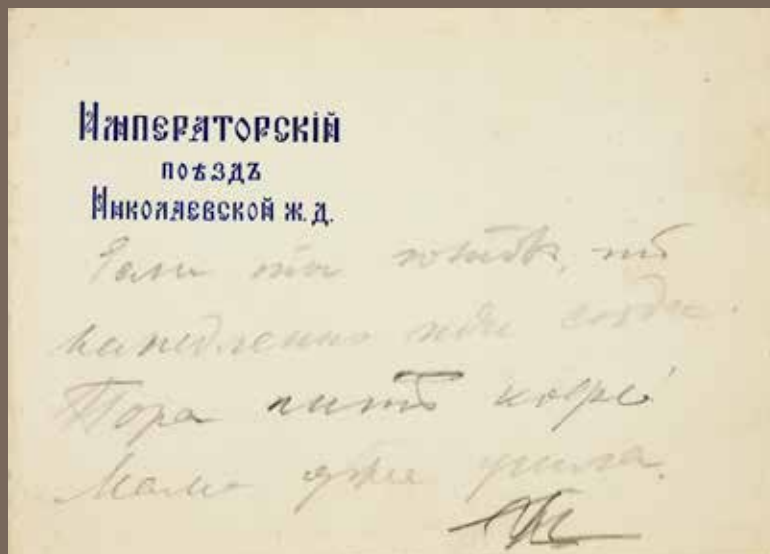 ИМПЕРАТОРСКІЙ
ПОѢЗДЪ
НИКОЛАЕВСКОЙ Ж.Д.
Если ты готовъ, то
немедленно иди сюда.
Пора пить кофе!
Мама уже ушла.